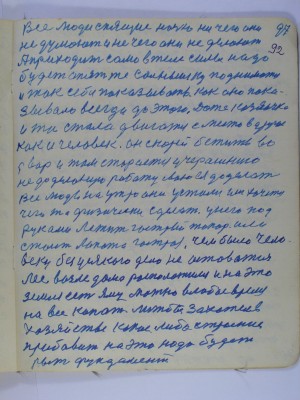 97
Все люди спящие ночю ни чего они
не думают и не чего они не делают 92
А приходит само втеми силы надо
будет опять же солнышку поднимать
и так себя показывать как оно пока-
зывало всегда до этого, тоже
и ты стала двигать с места в другое
как и человек. он скорей бежить во
двор и там старается вчерашнию
не доделанную работу свою доделать
Все люди на утро они устали им хочется
чего то физически сделат. у него под
руками лежит острый топор или
стоит лопата остра, чем было чело-
веку без целого дело не оставотся
Лес возле дома расположился и на это
земля ест яму можно влюбое время
на все копат. может захотев
хозяйство какое либо строение
прибавит на это надо будет
рыт фундамент